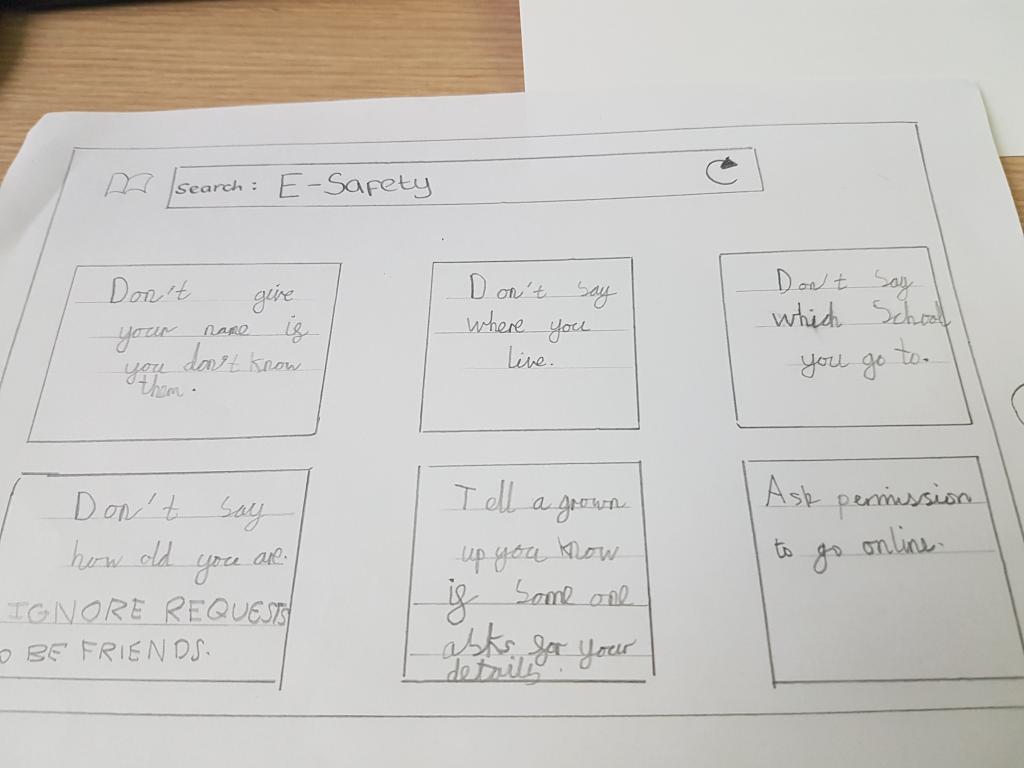 Search: E-Safety
Don't give
your name if
you don't know
them.
Don't say
where you
live.
Don't say
which School
you go to.
Don't say
how old you are.
IGNORE REQUESTS
O BE FRIENDS.
Tell a grown
up you know
if some one
asks for your
details.
Ask permission
to go online.